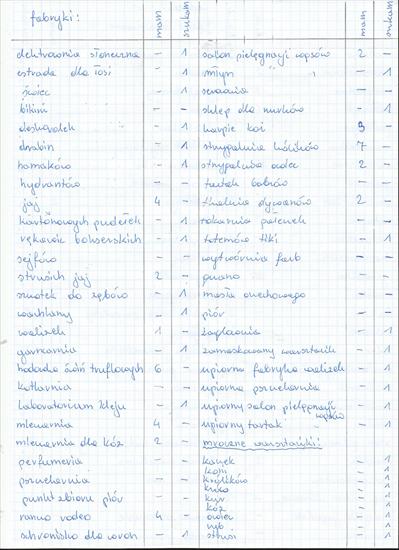 fabryki: mam szukam mam szukam
elektrownia słoneczna - 1 salon pielęgnacji łapsów 2 -
estrada dla łosi - 1 młyn - 1
świec - 1
bikini - - sklep dla nurków - 1
deskorolek - 1 9 -
drabin - 1 strzyżalnia królików 7 -
hamaków - 1 strzyżalnia owiec 2 -
hydrantów - - tartak bobrów - -
jaj 4 - tkalnia dywanów 2 -
kartonowych pudełek - 1 tokarnia - 1
rękawic bokserskich - 1 totemów tiki - 1
sejfów - - wytwórnia farb - -
strusich jaj 2 - guano - -
szczotek do zębów - 1 masła orzechowego - 1
wachlarzy - 1 piór - -
walizek 1 - żaglownia - 1
garncarnia - 1 zamaskowany warsztacik - 1
hodowla świń truflowych 6 - upiorna fabryka walizek - 1
kotlarnia - - upiorna pierzcharnia - 1
laboratorium kleju - 1 upiorny salon pielęgnacji łapsów - 1
mleczarnia 4 - upiorny tartak - 1
mleczarnia dla kóz 2 - mroczne warsztaciki:
perfumeria - - - 1
koni - 1
- - królików - 1
- 1
punkt zbioru piór - - kur - 1
kóz - 1
ranczo rodeo 4 - owiec - 1
ryb - 1
schronisko dla - 1 strusi - 1